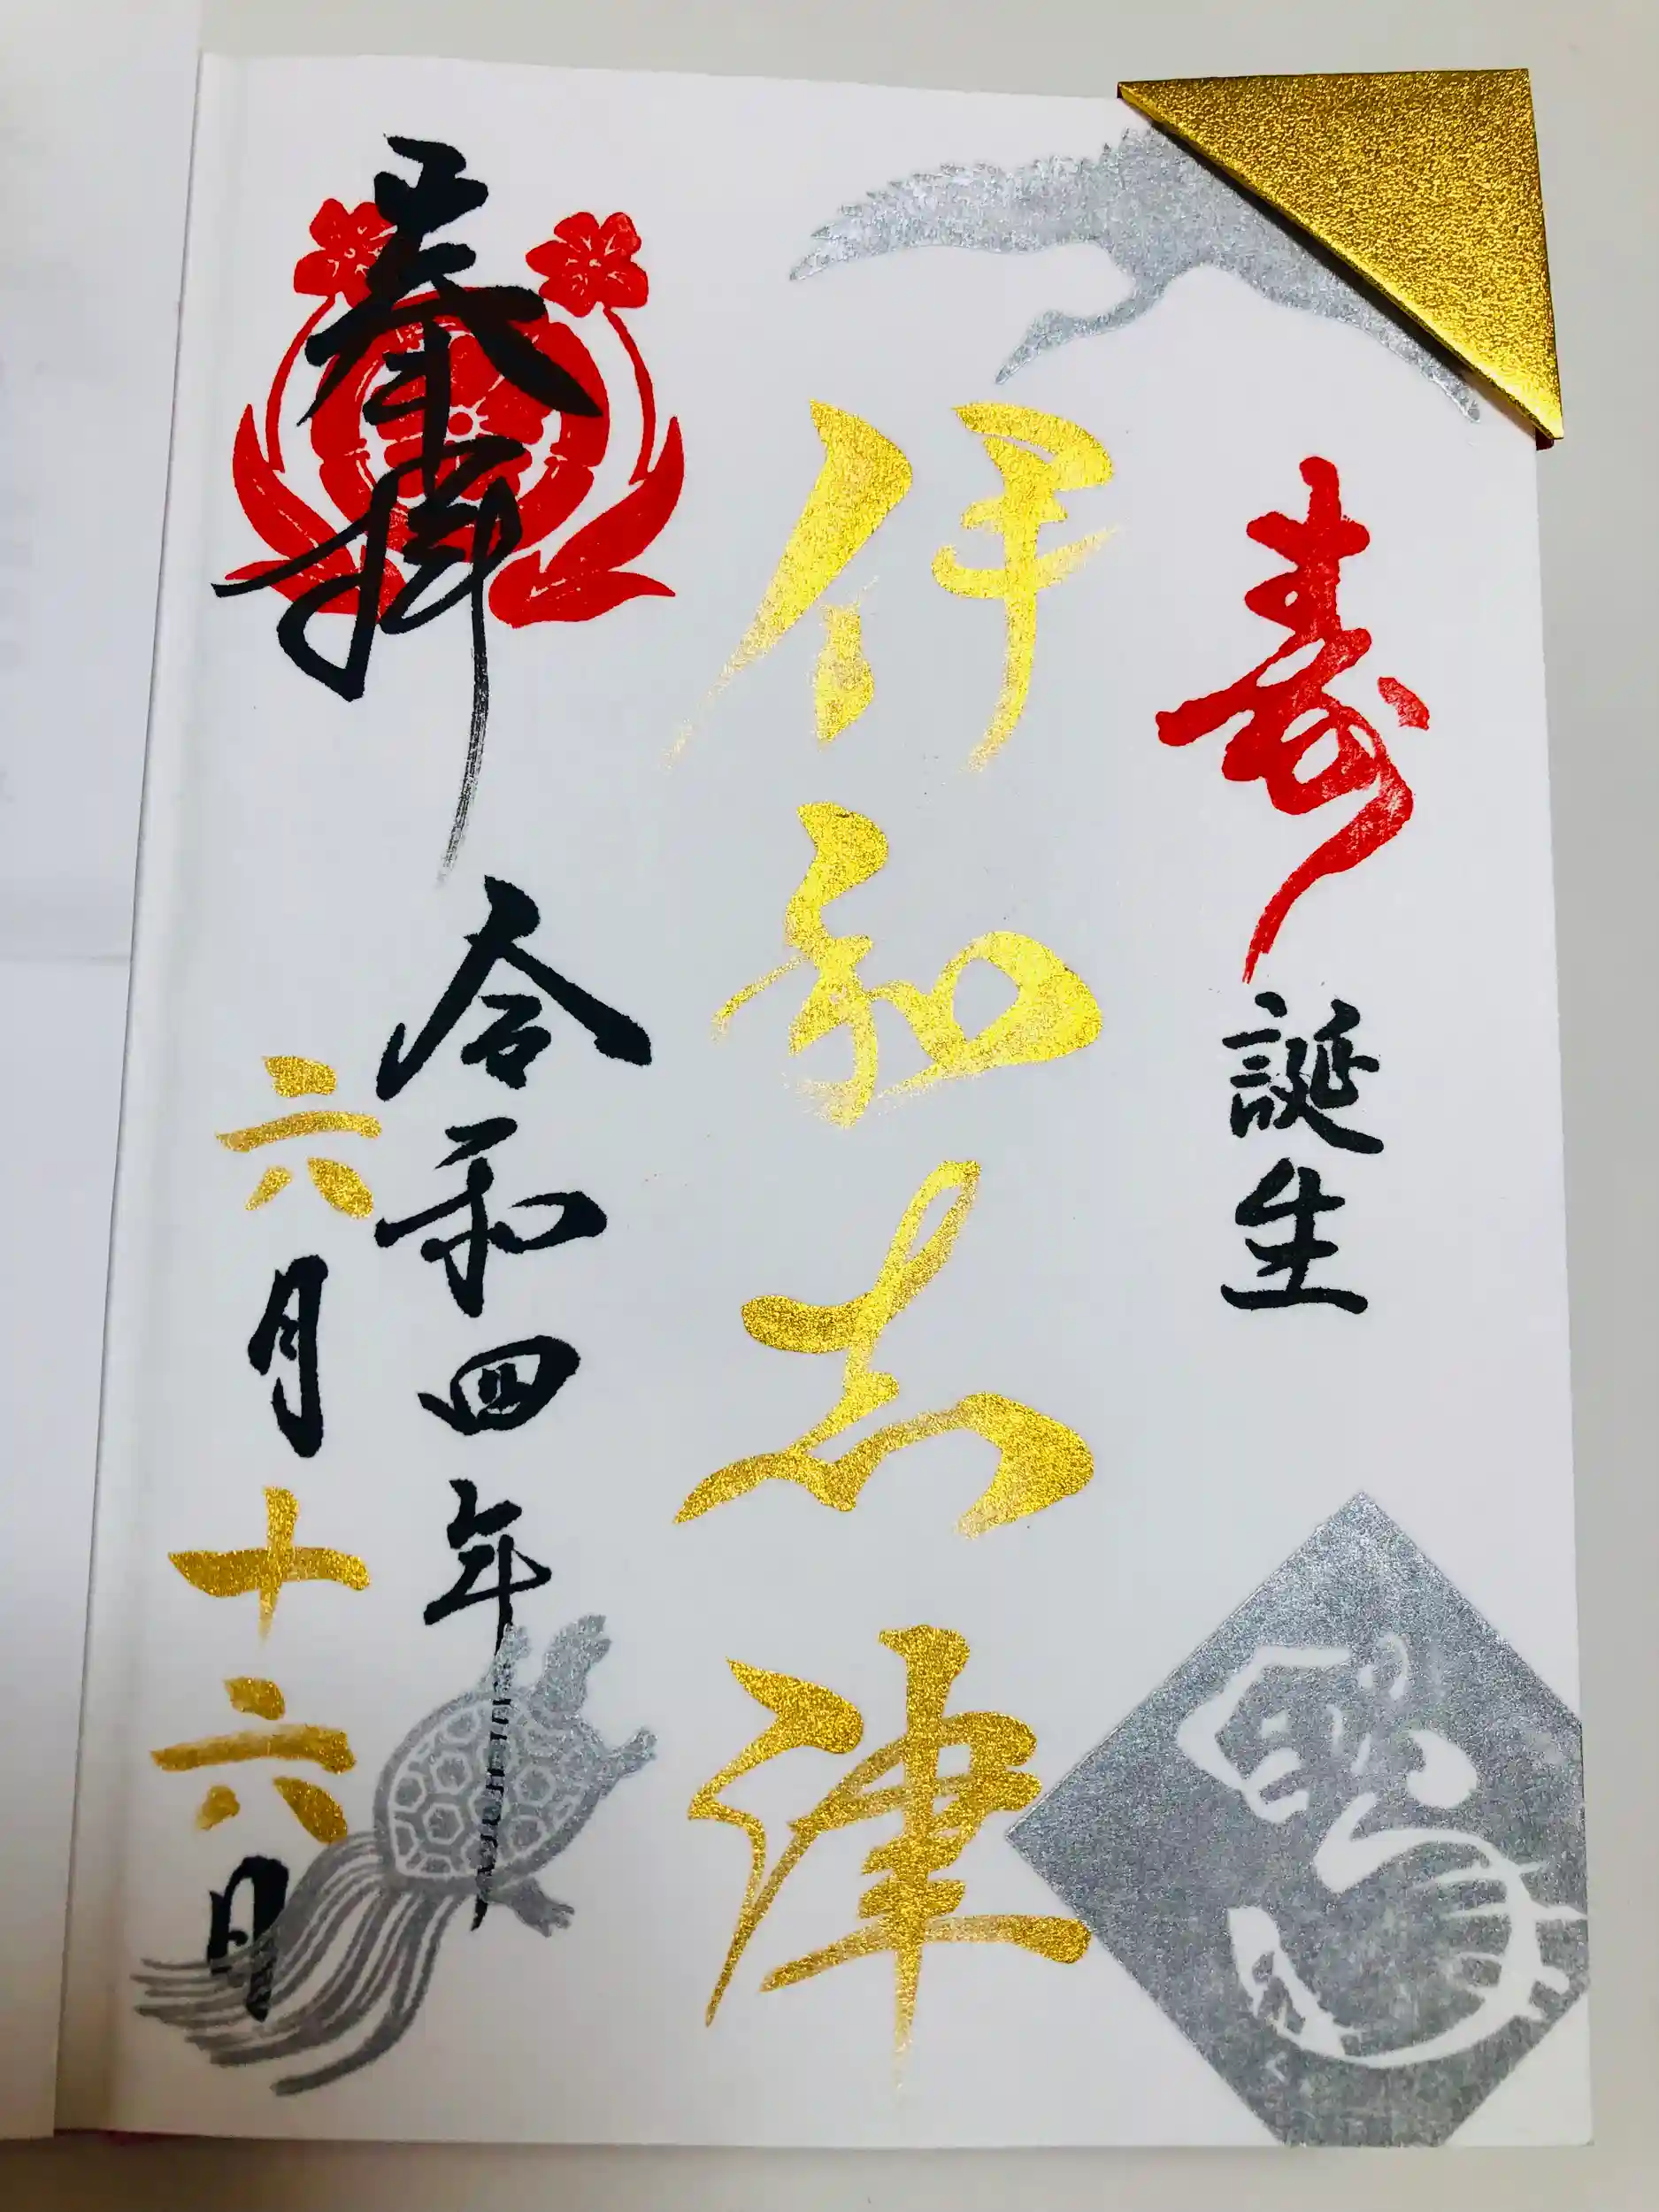 寿誕生
伊和志津
奉拝
令和四年
六月十六日